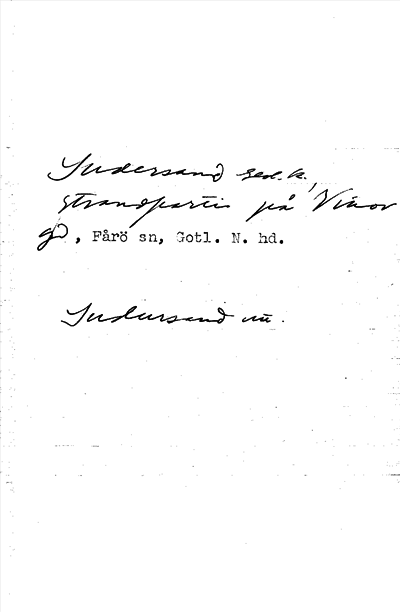 Sudersand ged. k.,
strandparti på Vinor
gd, Fårö sn, Gotl. N. hd.
Sudursand